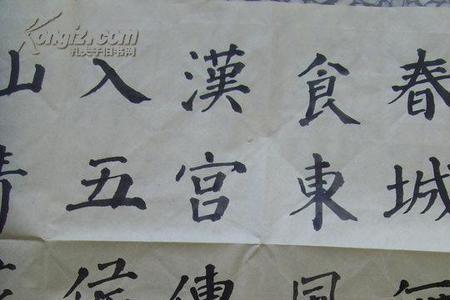 春城
食東風
漢宫傳
入五侯
山
kongfz.com
孔夫子旧书网